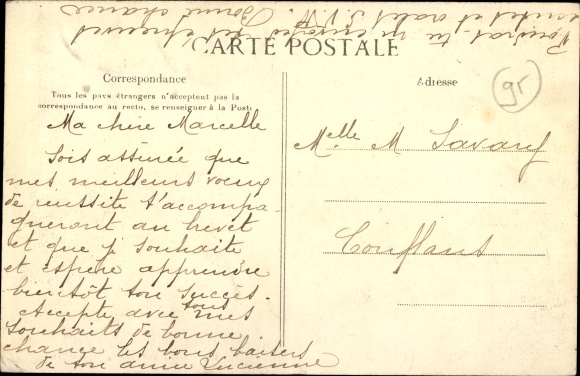 Voudras-tu m'envoyer tes épreuves
écrites et orales S.V.P. Bonne chance
CARTE POSTALE
Correspondance
Tous les pays étrangers n'acceptent pas la
correspondance au recto, se renseigner à la Poste
Ma chère Marcelle
Sois assurée que
mes meilleurs voeux
de réussite t'accompa-
gneront au brevet
et que je souhaite
et espère apprendre
bientôt ton succès.
Accepte avec tous mes
souhaits de bonne
chance les bons baisers
de ton amie Lucienne
Adresse
95
Melle M Savary
Conflans